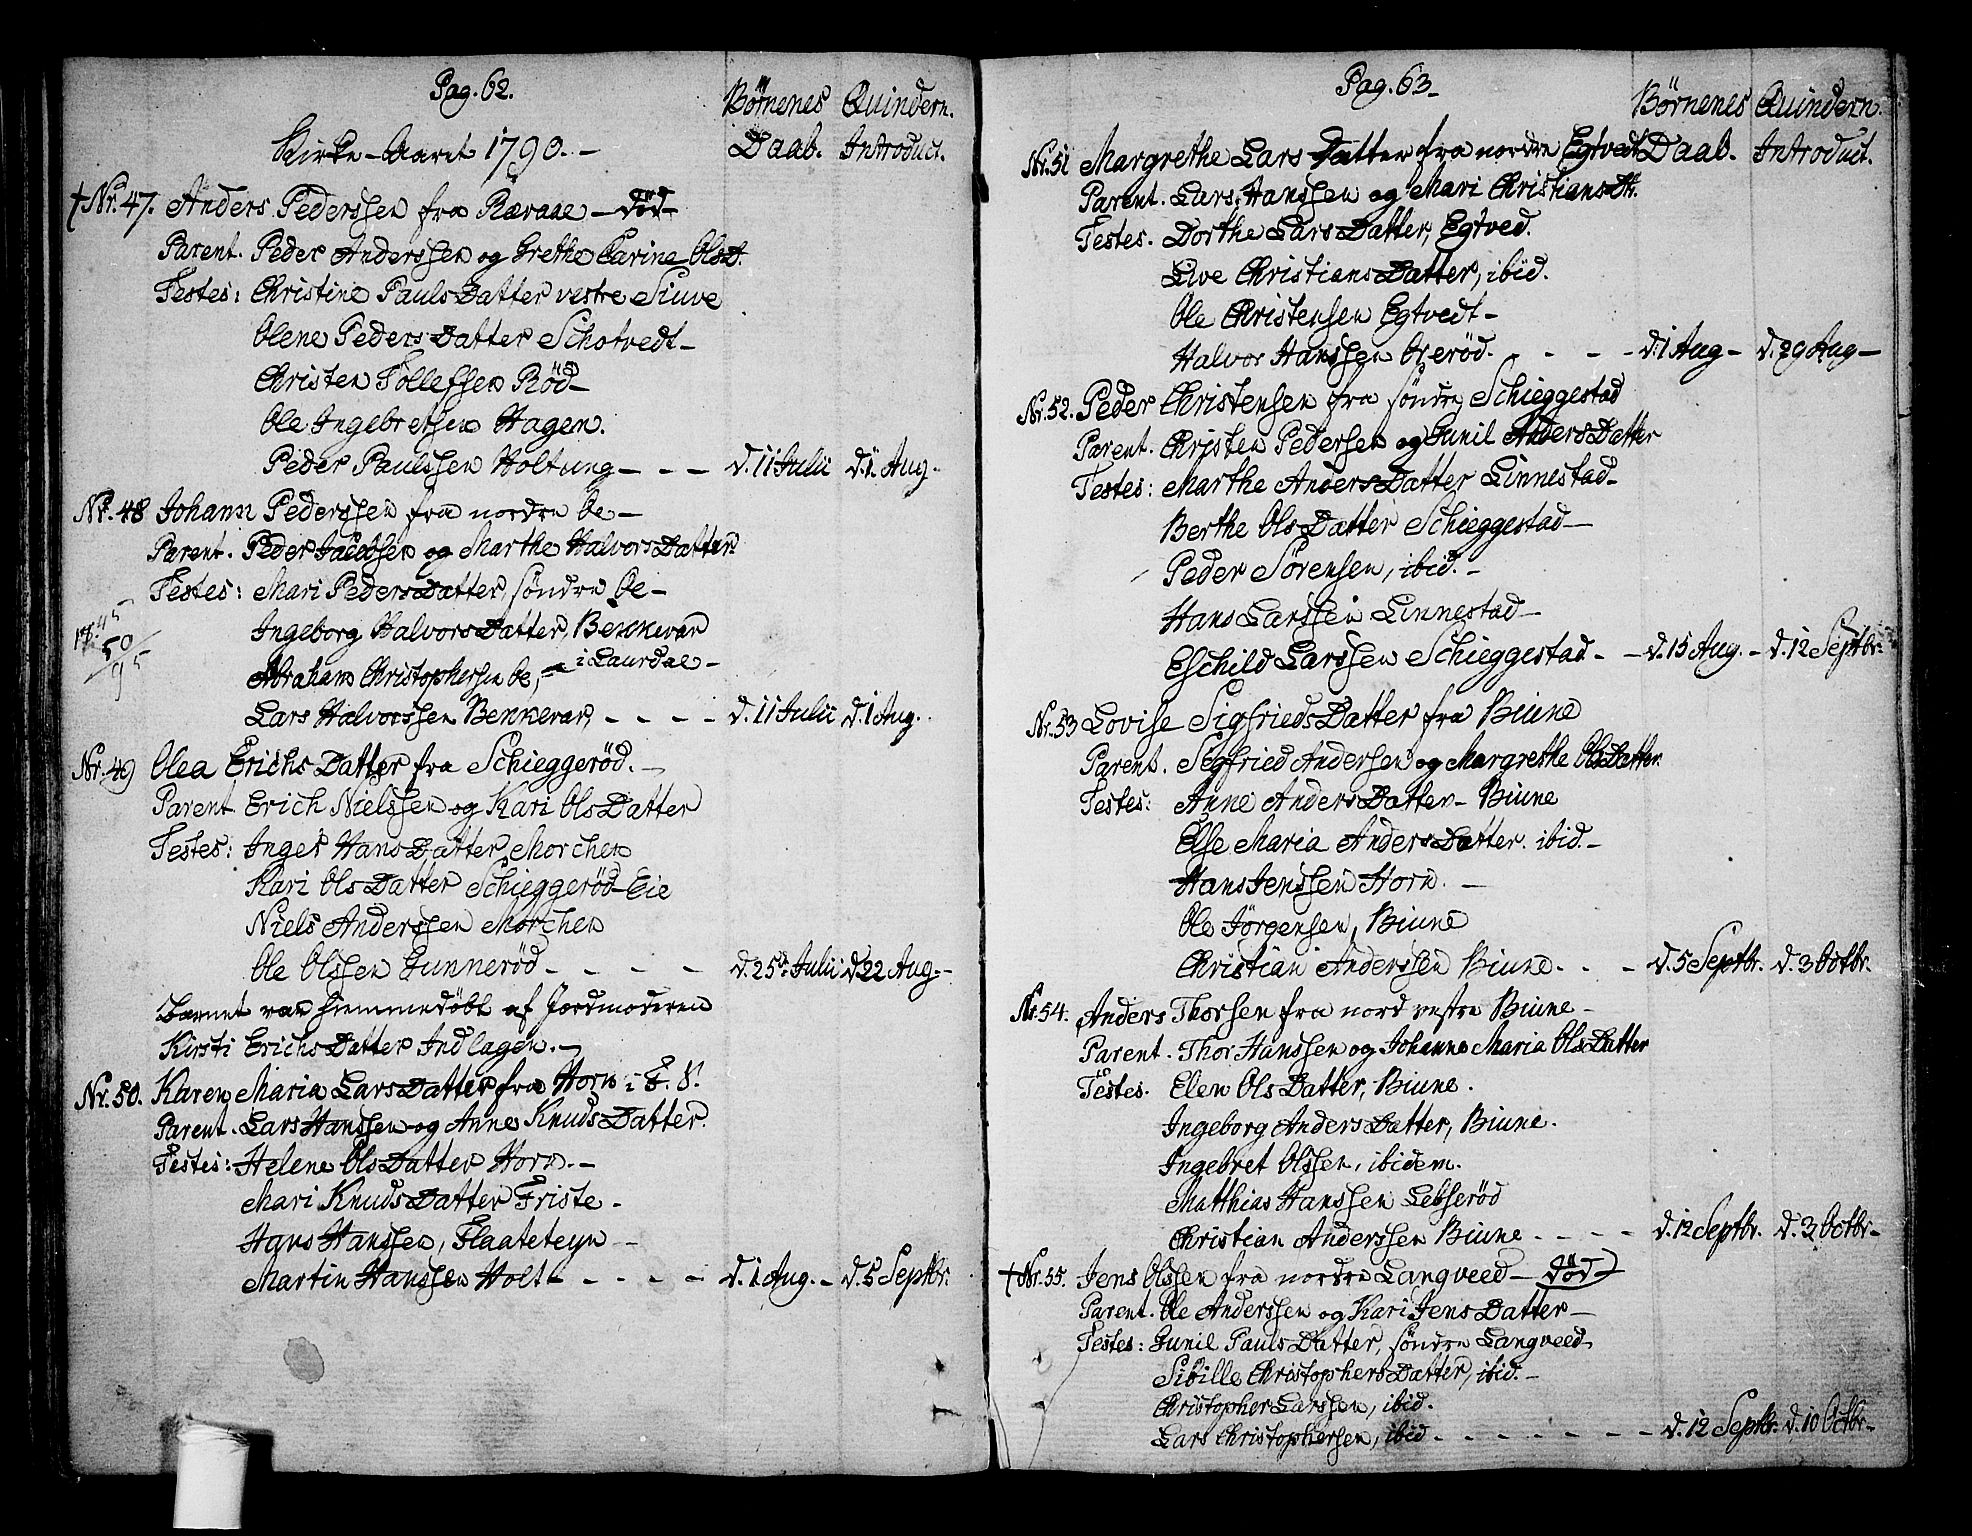 Pag. 62.
Börnenes Quindern.
Kirke-Aaret 1790. -
Daab. Introduct.
† Nr. 47. Anders Pederssen fra Rævaae - död
Parent. Peder Anderssen og Grethe Carine OlsD.
Testes: Christine PaulsDatter vestre Siuve
Olene PedersDatter Schotvedt -
Christen Tollefsen Röd -
Ole Ingebretsen Hagen.
Peder Paulssen Holtung - - - d. 11 Julii d. 1. Aug.
Nr. 48 Johann Pederssen fra nordre Oe -
Parent. Peder Jacobsen og Marthe HalvorsDatter
Testes: Mari PedersDatter, söndre Oe -
Ingeborg HalvorsDatter, Bekkevar
Abraham Christophersen Oe, - i Laurdae -
Lars Halvorssen Bekkevar, - - - - d. 11 Julii d. 1 Aug.
45
50
95
Nr. 49 Olea ErichsDatter fra Schieggeröd. -
Parent Erich Nielssen og Kari OlsDatter
Testes: Inger HansDatter Morchen
Kari OlsDatter Schieggeröd-Eie
Niels Anderssen Morchen
Ole Olssen Gunneröd - - - - d. 25de Julii d. 22 Aug. -
Barnet var hiemmedöbt af Jordmoderen
Kirsti ErichsDatter Indlagen. -
Nr. 50. Karen Maria LarsDatter fra Horn i E. S.
Parent. Lars Hanssen og Anne KnudsDatter.
Testes: Helene OlsDatter Horn. -
Mari KnudsDatter Friste -
Hans Hanssen, Flaateteyn -
Martin Hanssen Holt - - - - - d. 1 Aug. - d. 5 Septbr.
Pag. 63.
Börnenes Quindern.
Nr. 51 Margrethe LarsDatter fra nordre Egtvedt Daab. Introduct.
Parent. Lars Hanssen og Mari ChristiansDtr.
Testes. Dorthe LarsDatter, Egtved.
Live ChristiansDatter, ibid.
Ole Christensen Egtvedt -
Halvor Hanssen Oseröd. - - - d. 1 Aug - d. 29 Aug -
Nr. 52. Peder Christensen fra söndre Schieggestad
Parent. Christen Pedersen og Gunil AndersDatter
Testes: Marthe AndersDatter Linnestad -
Berthe OlsDatter Schieggestad -
Peder Sörensen, ibid. -
Hans Larssen Linnestad -
Eschild Larssen Schieggestad - - d. 15 Aug. - d. 12 Septbr.
Nr. 53 Lovise SigfriedsDatter fra Biune
Parent. Segfried Andersen og Margrethe OlsDatter.
Testes: Anne AndersDatter - Biune
Else Maria AndersDatter. ibid. -
Hans Jenssen Horn. -
Ole Jörgensen, Biune
Christian Anderssen Biune. - - - d. 5 Septbr. d. 3 Octbr.
Nr. 54. Anders Thorsen fra nord vestre Biune -
Parent. Thor Hanssen og Johanne Maria OlsDatter
Testes. Elen OlsDatter, Biune.
Ingeborg AndersDatter, Biune.
Ingebret Olssen, ibidem.
Matthias Hanssen Lebseröd
Christian Anderssen Biune - - - - d. 12 Septbr. d. 3 Octbr -
† Nr. 55. Jens Olssen fra nordre Langveed - död
Parent. Ole Anderssen og Kari JensDatter -
Testes: Gunil PaulsDatter, söndre Langveed
Sibille ChristophersDatter, ibid. -
Christopher Larssen, ibid.
Lars Christophersen, ibid - - - - - - - d. 12 Septbr. d. 10 Octbr -